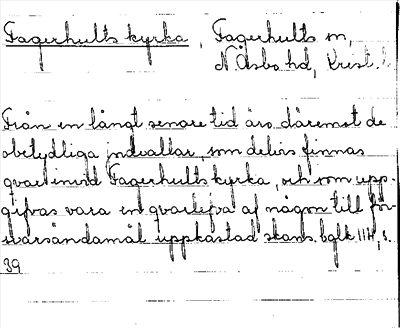 Fagerhults kyrka, Fagerhults sn,
N. Åsbo hd, Krist. l
Från en långt senare tid äro däremot de
obetydliga jordvallar, som delvis finnas
qvar invid Fagerhults kyrka, och som upp-
gifvas vara en qvarlefva af någon till för-
svarsändamål uppkastad skans. bglk III, s.
39